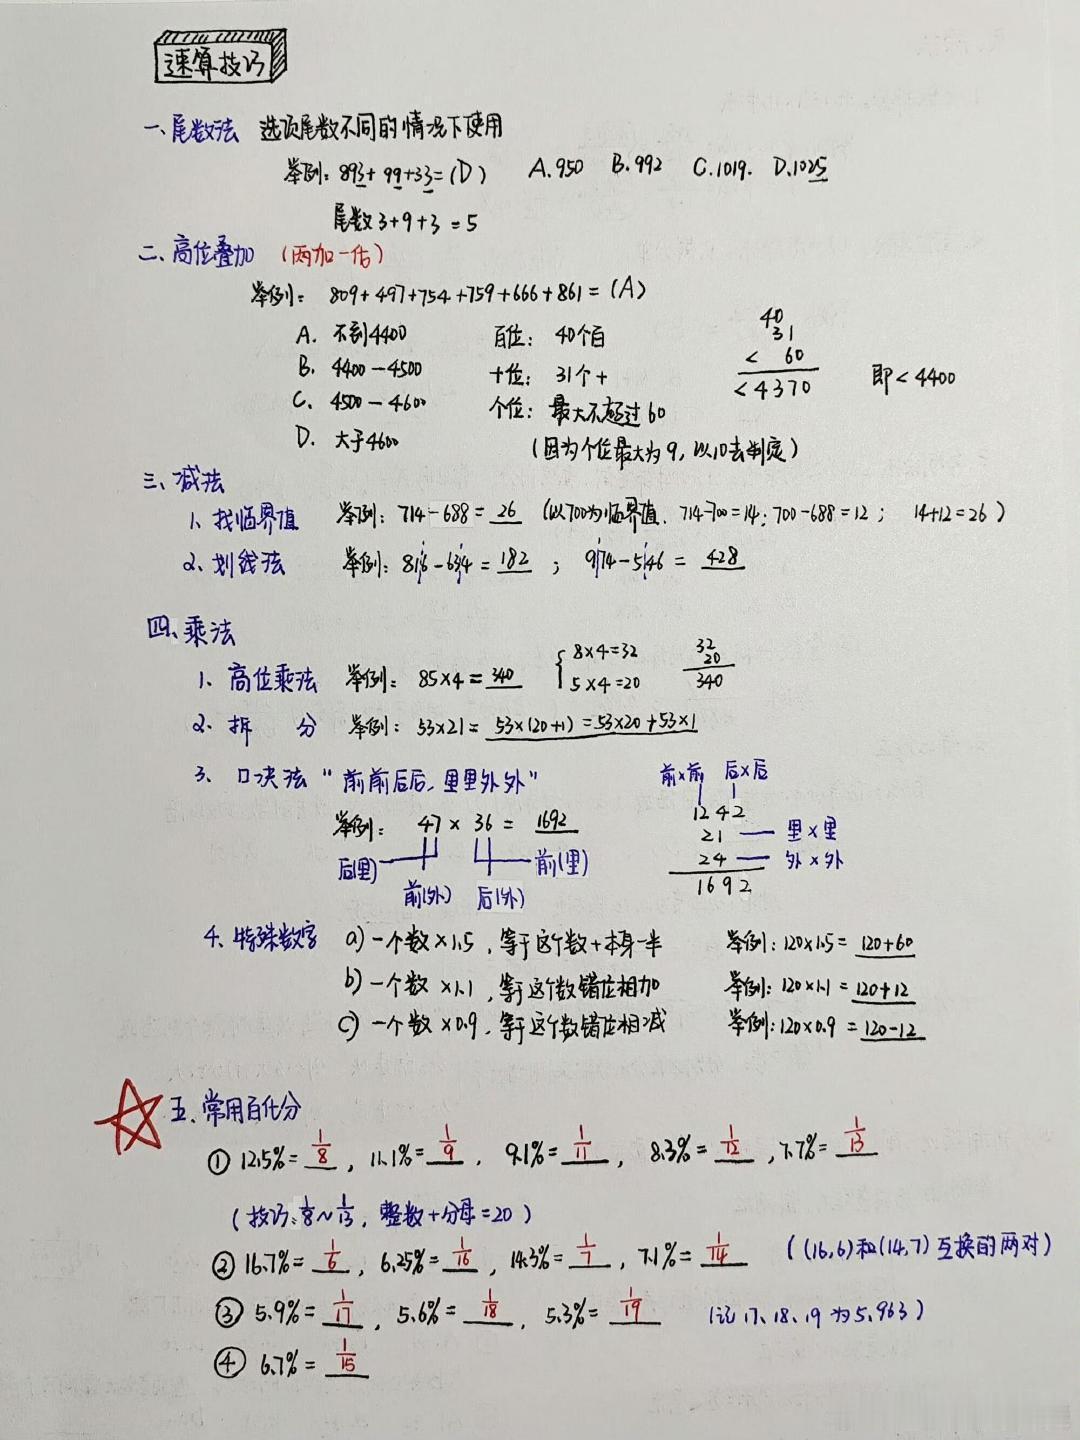 速算技巧
一、尾数法 选项尾数不同的情况下使用
举例：893+99+33=(D) A.950 B.992 C.1019. D.1025
尾数3+9+3=5
二、高位叠加 (两加一估)
举例：809+497+754+759+666+861=(A)
A. 不到4400 百位：40个百
B. 4400—4500 十位：31个十
C. 4500—4600 个位：最大不超过60
D. 大于4600 (因为个位最大为9,以10去判定)
40
31
< 60
<4370 即<4400
三、减法
1、找临界值 举例：714-688=26 (以700为临界值. 714-700=14；700-688=12； 14+12=26)
2、划线法 举例：816-634=182； 974-546=428
四、乘法
1、高位乘法 举例：85×4=340 { 8×4=32
5×4=20
32
20
340
2、拆 分 举例：53×21=53×(20+1)=53×20+53×1
3、口决法 "前前后后,里里外外"
举例：47×36=1692
后(里) 前(里)
前(外) 后(外)
前×前 后×后
1242
21 — 里×里
24 — 外×外
1692
4、特殊数字 a) 一个数×1.5，等于这个数+本身一半 举例：120×1.5=120+60
b) 一个数×1.1，等于这个数错位相加 举例：120×1.1=120+12
c) 一个数×0.9，等于这个数错位相减 举例：120×0.9=120-12
五、常用百化分
① 12.5%=1/8，11.1%=1/9，9.1%=1/11，8.3%=1/12，7.7%=1/13
(技巧：1/8~1/13，整数+分母=20)
② 16.7%=1/6，6.25%=1/16，14.3%=1/7，7.1%=1/14 ((16,6)和(14,7)互换的两对)
③ 5.9%=1/17，5.6%=1/18，5.3%=1/19 (记17、18、19为5.963)
④ 6.7%=1/15